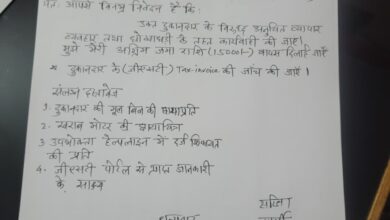 अतः आपसे विनम्र निवेदन है कि:
उक्त दुकानदार के विरुद्ध अनुचित व्यापार
व्यवहार तथा धोखाधड़ी के तहत कार्यवाही की जाए।
मुझे मेरी अग्रिम जमा राशि (15000/-) वापस दिलाई जाए
* दुकानदार के (जीएसटी) Tax-invoice की जांच की जाएं।
संलग्न दस्तावेज
1. दुकानदार की मूल बिल की छायाप्रति
2. खराब मोटर की छायाचित्र
3. उपभोक्ता हेल्पलाइन में दर्ज शिकायत
की प्रति
4. जीएसटी पोर्टल से प्राप्त जानकारी
के साक्ष्य